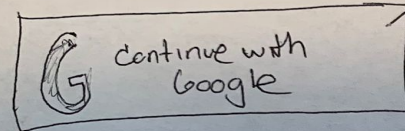 G continue with
Google